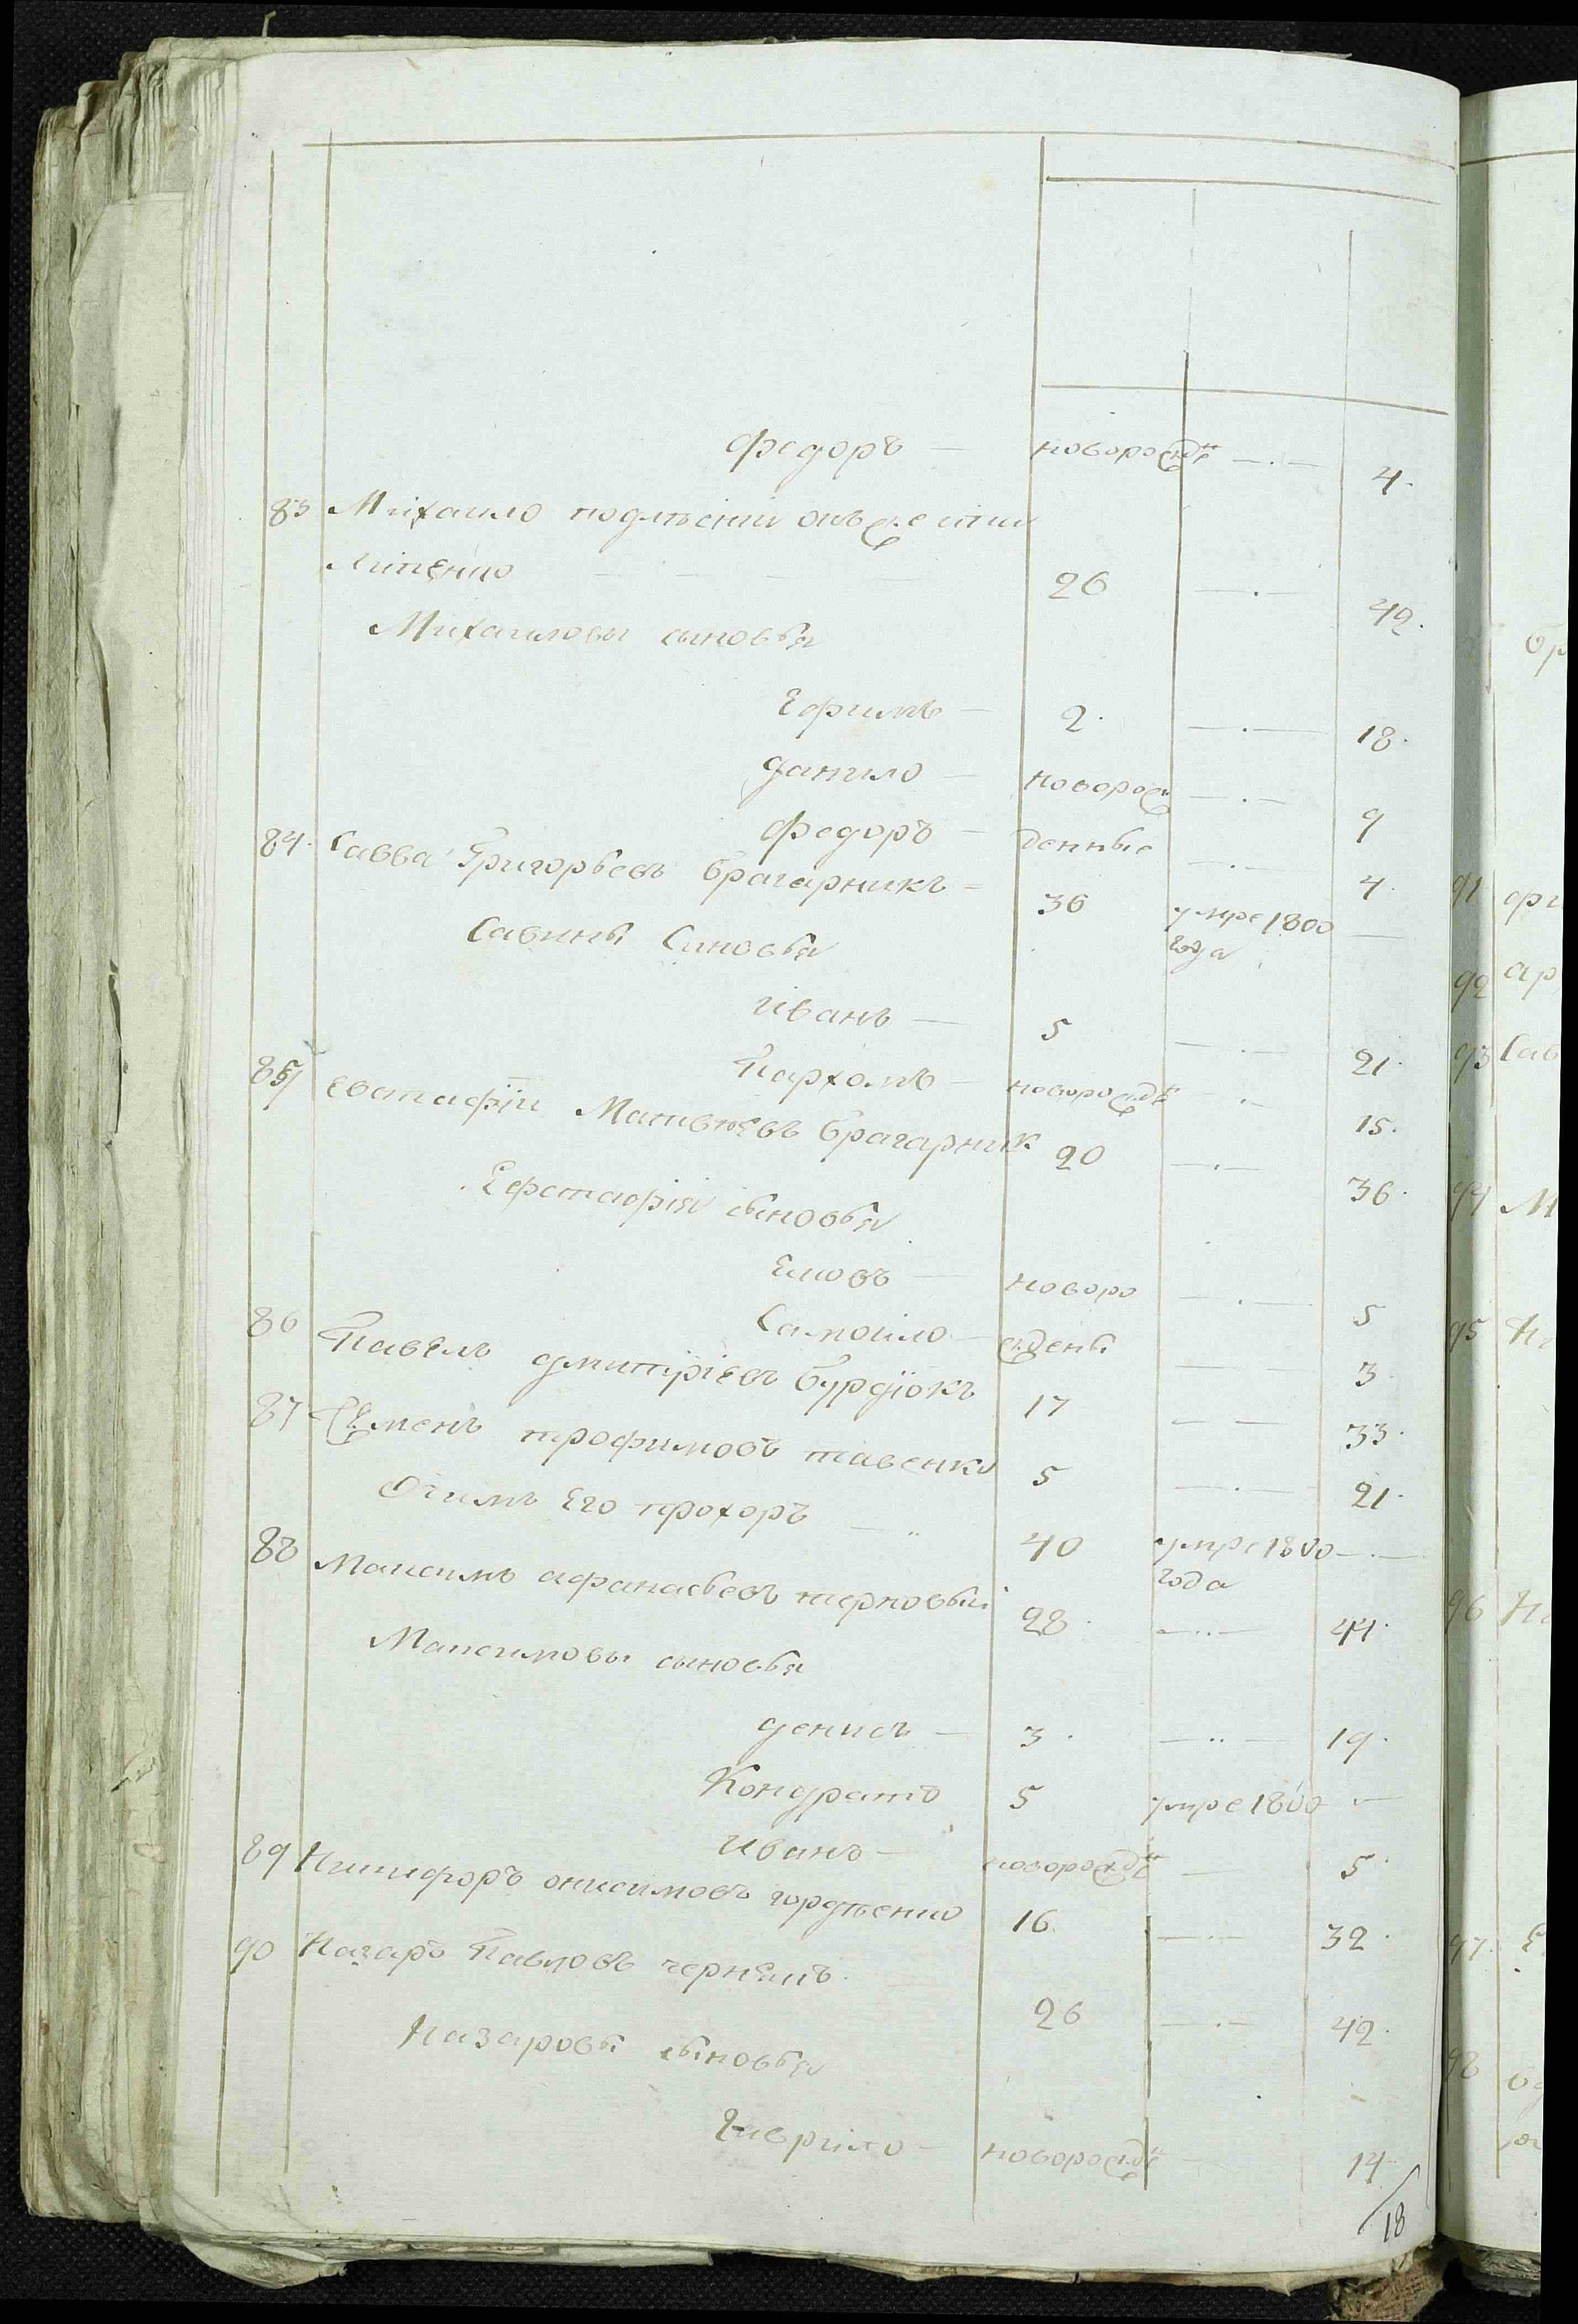 федоръ — новорожде —.— 4.
83 Михаило подлѣсній онъ же
Литвенко — — — 26 —.— 42.
Михаиловы сыновья
Ефимъ — 2. —.— 18.
данило — новорож —.— 9
федоръ — денные —.— 4.
84. Савва Григорьевъ брагарникъ — 36 умре 1800 —
года
Савины Синовья
иванъ — 5 —.— 21.
Пархомъ — новорожде —.— 15.
85 евстафій Матвѣевъ брагарник 20 —.— 36.
Ефстафія сыновья
новоро —.— 5
Самойло — ждены — 3.
86 Павелъ дмитріевъ бурдіокъ 17 — — 33.
87 Семенъ трофимовъ 5 —.— 21.
Отчимъ Его прохоръ — 40 умре 1800 —.—
года
88 Максимъ афанасьевъ терновый 28. —..— 44.
Максимовы сыновья
денисъ — 3. —..— 19.
Кондратъ 5 умре 1800 —
иванъ — новорожде — 5.
89 Никифоръ онисимовъ гордѣенко 16. —.— 32.
90 Назаръ Павловъ чернышъ 26 —.— 42.
Назаровы сыновья
Гаврило — новорожде — 14.
18
91
92
93
94
95
96
97.
98